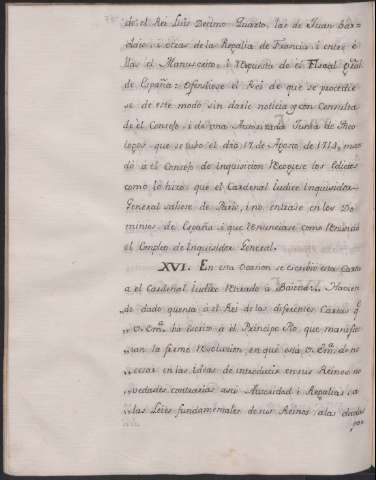 de el Rei Luis Decimo Quarto, las de Juan Bar-
claio, i otras de la Regalia de Francia, i entre e-
llas el Manuscrito, i respuesta de el Fiscal Gral
de España: Ofendiose el Rei de que se procediese
se de este modo sin darle noticia, y con Consulta
de el Consejo, i de una Autorizada Junta de Theo-
logos que se tubo el dia 17 de Agosto de 1714, man-
dò à el Consejo de inquisicion recogiese los Edictos
como lo hizo; que el Cardenal Iudice Inquisidor
General saliese de Paris, i no entrase en los Do-
minios de España i que renunciase como renunciò
el Empleo de Inquisidor General.
XVI. En esta Ocasion se escribio esta Carta
a el Cardenal Iudice retirado à Baiona. Havien-
do dado quenta à el Rei de las diferentes Cartas q.
V. Em.ª ha escrito à el Principe Pio, que manifies-
tan la firme resolucion, en que està V. Em.ª de no
cesar en las Ideas de introducir en sus Reinos no-
vedades contrarias a su Autoridad i Regalias, a
las Leies fundamentales de sus Reinos, a las dadas
por